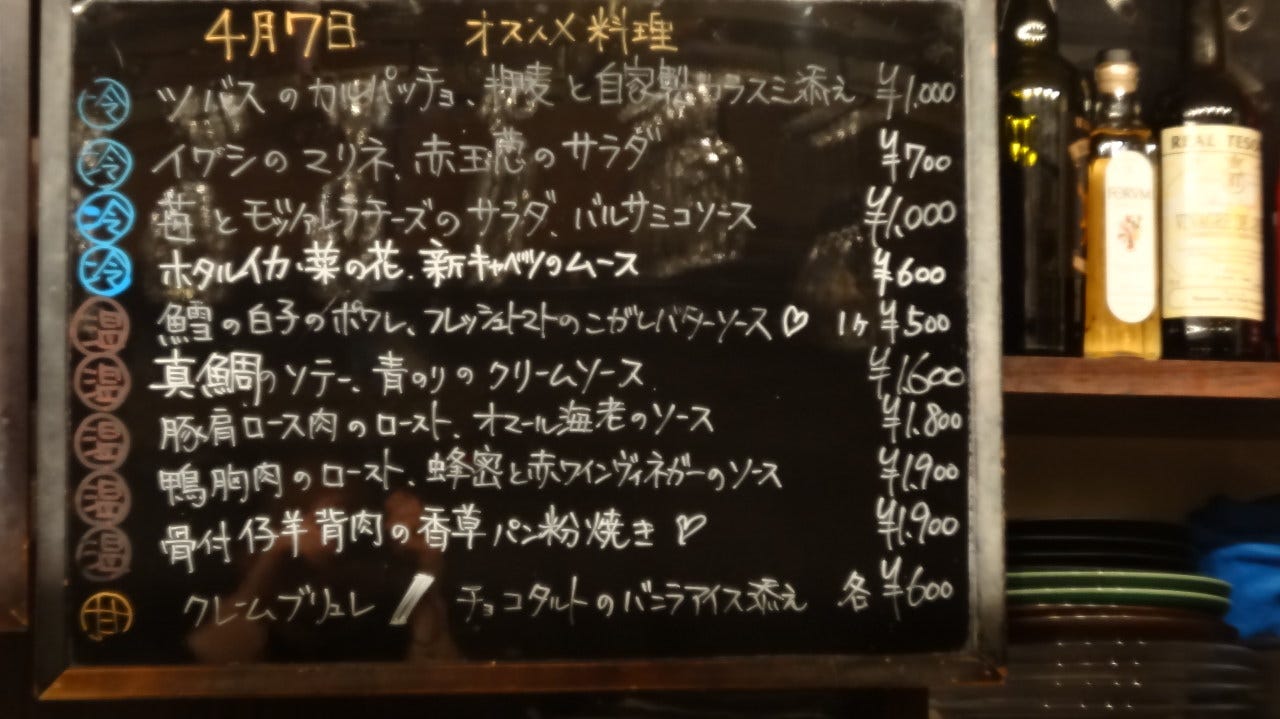 4月7日 オススメ料理
冷 ツバスのカルパッチョ、押麦と自家製カラスミ添え ¥1.000
冷 イワシのマリネ、赤玉葱のサラダ ¥700
冷 苺とモッツァレラチーズのサラダ、バルサミコソース ¥1.000
冷 ホタルイカ・菜の花、新キャベツのムース ¥600
温 鱈の白子のポワレ、フレッシュトマトのこがしバターソース♡ 1ヶ ¥500
温 真鯛のソテー、青のりのクリームソース ¥1.600
温 豚肩ロース肉のロースト、オマール海老のソース ¥1.800
温 鴨胸肉のロースト、蜂蜜と赤ワインヴィネガーのソース ¥1.900
温 骨付仔羊背肉の香草パン粉焼き♡ ¥1.900
甘 クレームブリュレ / チョコタルトのバニラアイス添え 各¥600
FORVM
REAL TESO